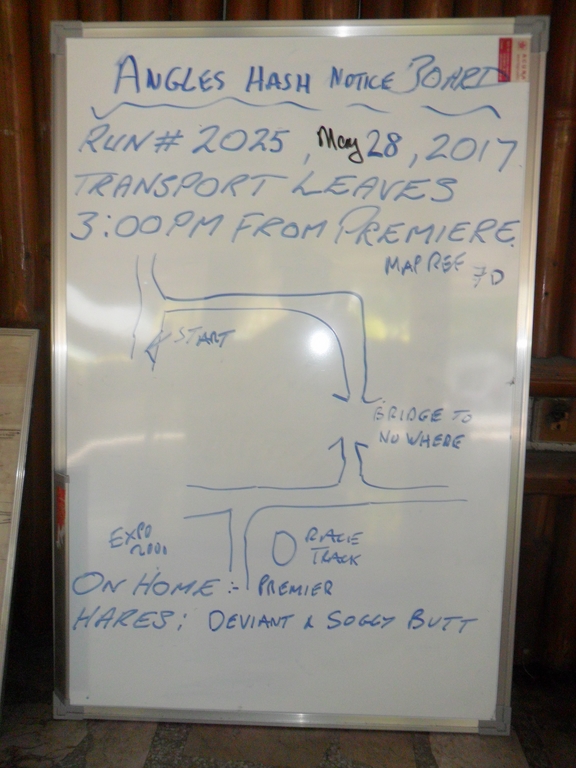 ANGLES HASH NOTICE BOARD
RUN# 2025, May 28, 2017
TRANSPORT LEAVES
3:00PM FROM PREMIERE
MAP REF 7D
START
BRIDGE TO
NO WHERE
EXPO
RACE
TRACK
ON HOME:- PREMIER
HARES: DEVIANT & SOGGY BUTT